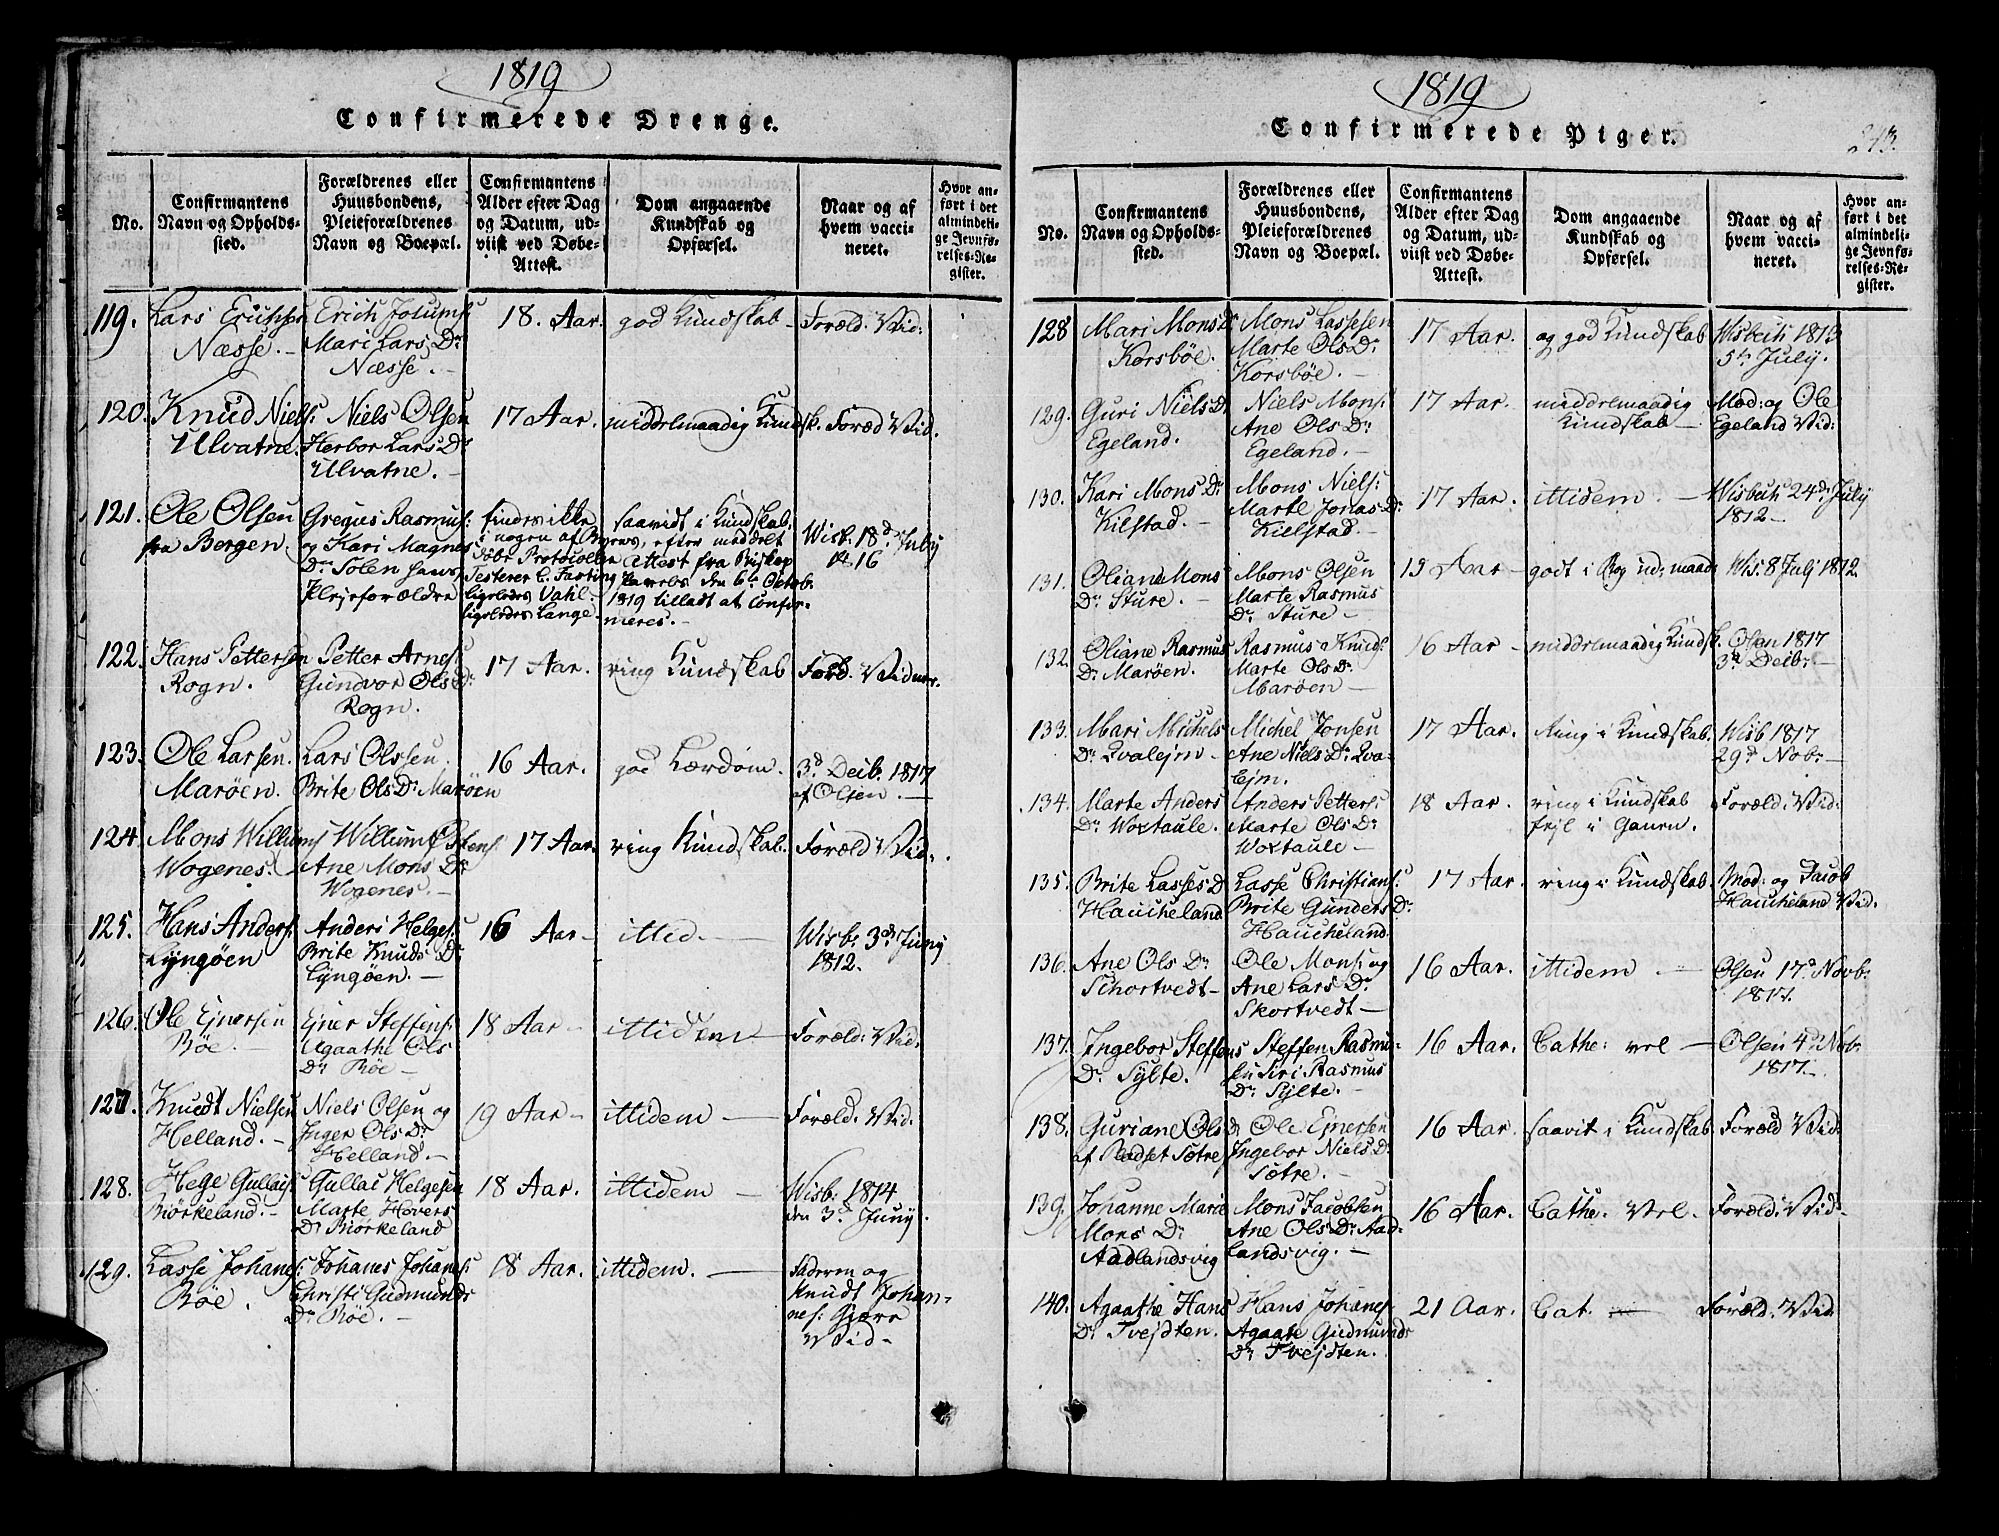 1819
Confirmerede Drenge.
No.
Confirmantens
Navn og Opholds-
sted.
Forældrenes eller
Huusbondens,
Pleieforældrenes
Navn og Boepæl.
Confirmantens
Alder efter Dag
og Datum, ud-
viist ved Døbe-
Attest.
Dom angaaende
Kundskab og
Opførsel.
Naar og af
hvem vacci-
neret.
Hvor an-
ført i det
almindeli-
ge Jevnfø-
relses-Re-
gister.
119. Lars Erichsen
Næsse.
Erich
Mari Lars Dr
Næsse.
18. Aar.
god Kundskab
Foræld. Vid:
120. Knud Niels:
Ulvatne.
Niels Olsen
Herbor Lars Dr
Ulvatne.
17 Aar.
middelmaadig Kundsk.
Foræd Vid.
121. Ole Olsen
fra Bergen.
Gregus Rasmus:
og Kari Magnes
Dr Solen
Plejeforældre
findes ikke
i nogen af Byens
døbe Protocoller
Testerer C. Fasting
ligeledes Vahl-
ligeledes Lange
saavidt i Kundskab,
efter meddelt
Attest fra Biskop
Pavels den 6te Octob.
1819 tilladt at Confir-
meres.
Wisb. 18d July
1816
122. Hans Pettersen
Rogn.
Petter Arnes:
Gundvor Ols Dr
Rogn.
17 Aar.
ring Kundskab
Forld. Vidner.
123. Ole Larsen.
Marøen.
Lars Olssen
Brite Ols Dr Marøen
16 Aar.
god Lærdom.
3d Decb. 1817
af Olsen.
124. Mons Willums
Wogenes.
Willum
Ane Mons Dr
Wogenes.
17 Aar.
ring Kundskab.
Foræld: Vid:
125. Hans Anders:
Lyngøen
Anders Helges:
Brite Knuds Dr
Lyngøen.
16 Aar
ittid.
Wisb. 3d Juny
1812.
126. Ole Ejnersen
Bøe.
Ejner Steffens:
Agaathe Ols
Dr Bøe
18 Aar
ittidem
Foræld: Vid.
127. Knudt Nielsen
Helland.
Niels Olsen og
Inger Ols Dr
Helland.
19 Aar
ittidem
Foræld. Vid.
128. Hege Gullais
Biørkeland.
Gullac Helgesen
Marte Hovers
Dr Biørkeland
18 Aar.
ittidem
Wisb: 1814
den 3d Juny.
129. Lasse Johanes:
Bøe.
Johanes Johanes:
Christi Gudmunds
Dr Bøe.
18 Aar.
ittidem.
Faderen og
Knudt Johan-
nes: Gjære
Vid
1819
Confirmerede Piger.
243.
No.
Confirmantens
Navn og Opholds-
sted.
Forældrenes eller
Huusbondens,
Pleieforældrenes
Navn og Boepæl.
Confirmantens
Alder efter Dag
og Datum, ud-
viist ved Døbe-
Attest.
Dom angaaende
Kundskab og
Opførsel.
Naar og af
hvem vacci-
neret.
Hvor an-
ført i det
almindeli-
ge Jevnfø-
relses-Re-
gister.
128 Mari Mons Dr
Korsbøe.
Mons Lassesen
Marte Ols Dr
Korsbøe.
17 Aar.
og god Kundskab
Wisbech 1813
5te July.
129. Guri Niels Dr
Egeland.
Niels Mons:
Ane Ols Dr
Egeland.
17 Aar.
middelmaadig
Kundskab
Mod: og Ole
Egeland Vid:
130. Kari Mons Dr
Kilstad.
Mons Niels:
Marte Jonas Dr
Kielstad.
17 Aar.
ittidem.
Wisbech 24d July
1812
131. Oliane Mons
Dr Sture.
Mons Olsen
Marte Rasmus
Dr Sture
19 Aar
godt i Bog ud: maadl
Wis. 8 July 1812.
132. Oliane Rasmus
Dr Marøen.
Rasmus Knuds:
Marte Ols Dr
Marøen
16 Aar
middelmaadig Kundsk.
Olsen 1817
3d Decbr
133. Mari Michels
Dr Qvalejm
Michel Jonsen
Ane Niels Dr Qva-
lejm.
17 Aar.
Ring i Kundskab.
Wisb 1817
29d Nobr
134. Marte Anders
Dr Woxtaule.
Anders Petters:
Marte Ols Dr
Woxtaule
18 Aar.
ring i Kundskab
fejl i Ganen.
Foræld: Vid:
135. Brite Lasses Dr
Haucheland
Lasse Christians:
Brite Gunders Dr
Haucheland.
17 Aar.
ring i Kundskab
Mod: og Jacob
Haucheland Vid.
136. Ane Ols Dr
Schortvedt
Ole Mons: og
Ane Lars Dr
Skortvedt
16 Aar.
ittidem
Olsen 17d Novb:
1817.
137. Ingebor Steffens
Dr Sylte.
Steffen Rasmu-
sen Siri Rasmus
Dr Sylte.
16 Aar.
Cathe: vel
Olsen 4d Nob:
1817.
138. Guriane Ols Dr
af Pladset Søtre
Ole Ejnersen
Ingebor Niels Dr
Søtre.
16 Aar.
saavit i Kundskab
Foræld Vid:
139. Johanne Marie
Mons Dr
Aadlandsvig
Mons Jacobsen
Ane Ols Dr Aad-
landsvig.
16 Aar.
Cathe. Vel.
Foræld: Vid.
140. Agaathe Hans
Dr Tvejdten.
Hans Johanes:
Agaate Gudmunds
Dr Tvejdten.
21 Aar.
Cat.
Foræld: Vid